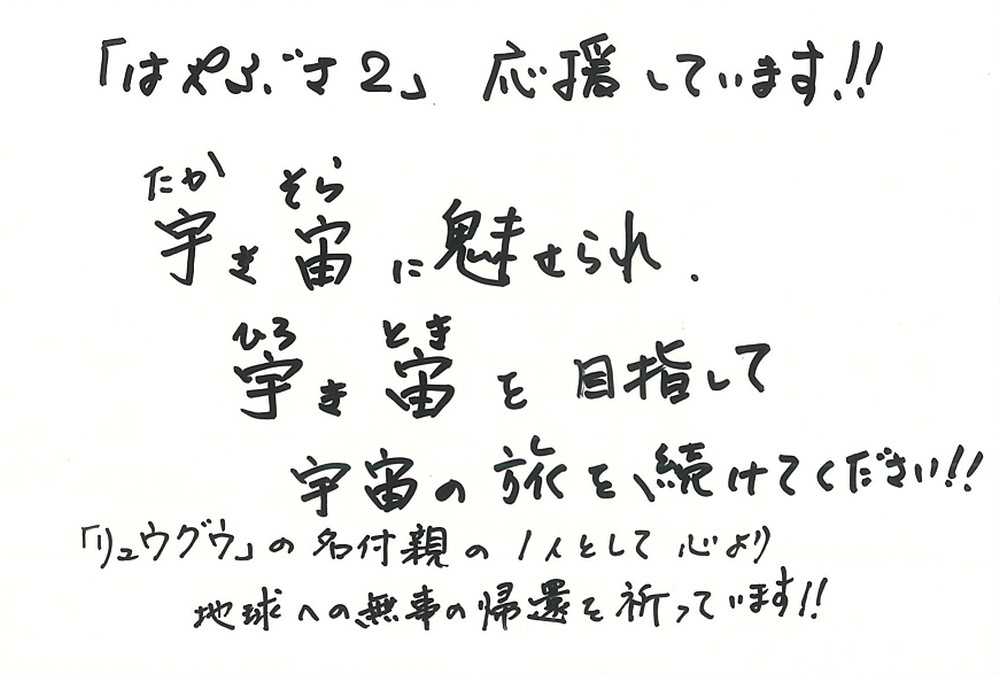 「はやぶさ2」 応援しています!!
たか そら
宇き宙に魅せられ.
ひろ とき
宇き宙を目指して
宇宙の旅を、続けてください!!
「リュウグウ」の名付親の1人として心より
地球への無事の帰還を祈っています!!